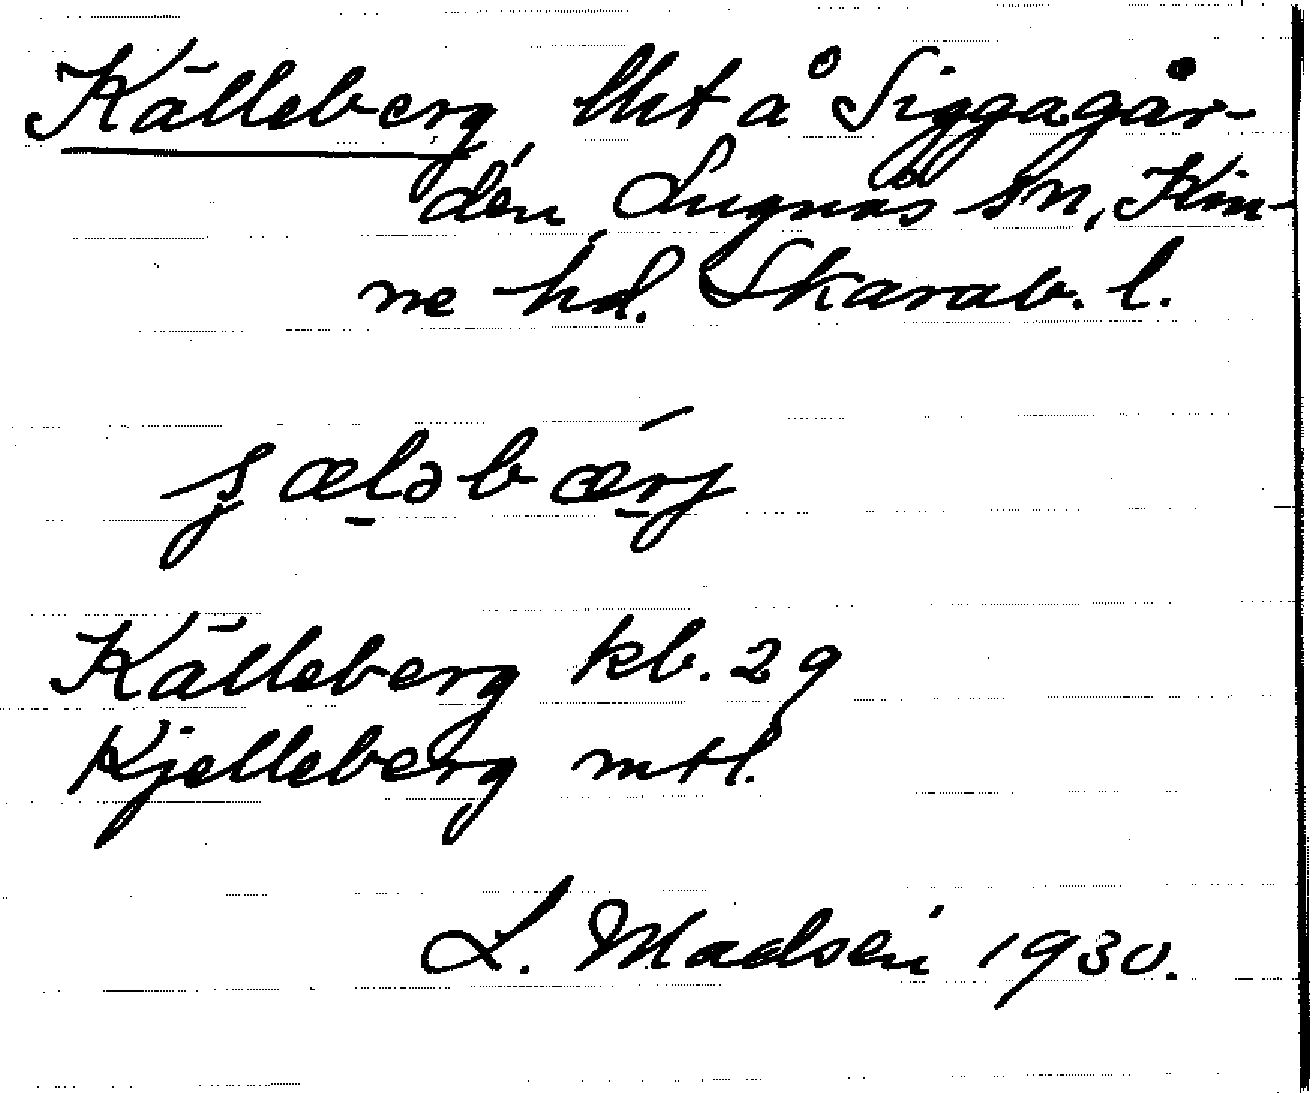 Källeberg lht å Siggagår-
den, Lugnås sn, Kin-
ne hd. Skarab. l.
Källeberg kb. 29
Kjelleberg mtl.
L. Madsen 1930.